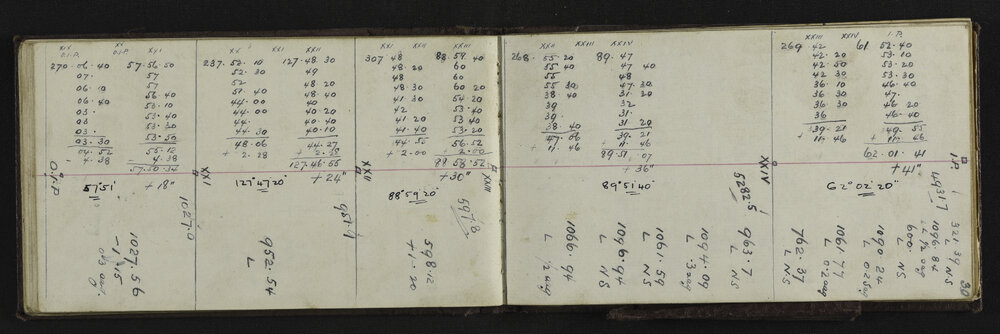 XIX XX XXI
O.I.P.
270 .06 . 40 57.56.50
07 . 57
06 . 10 57
06 . 40 56 40
03 . 53.10
03 53 40
03 . 53 40
03 . 30 53.50
04.52 55.12
4.38 - 4.38
57.50.34
O.I.P.
57°51' + 18"
1027.0
1027.56
- 1.15
XX XXI XXII
237.52.10 127.48.30
52.30 49
52 48.20
51.40 48.40
44.00 40
44.00 40.20
44. 40.40
44.30 40.10
48.06 44.27
+ 2.28 + 2.28
127.46.55
XXI
127°47'20" + 24"
951.1
952.54
L
XXI XXII XXIII
307 48 88.59.40
48 20 60
48 60
48.30 60 20
41 30 54 20
42 53.40
41 20 53 40
41.40 53.20
44.55 56.52
+ 2.00 + 2.00
88.58.52
XXII
88°59'20" + 30"
XXIII
597.8
598.12
+ 1.20
XXII XXIII XXIV
268. 55.20 89.47
55 40 47 40
55 48
55 30 47.30
38 40 31 20
39 32
39. 31
38.40 31.20
47.06 39.21
+ 11.46 + 11.46
89.51.07
+ 36"
89°51'40"
XXIV
5282.5
1066.94
L
1096.94
L NS
1061.59
L NS
1094.09
L
963.7
L NS
XXIII XXIV I.P.
269 42 61 52.40
42.20 53.10
42.30 53.20
42 30 53.30
36.10 46.40
36 30 47.
36.30 46 20
36 46.40
39.21 49.55
+ 11.46 + 11.46
62.01.41
+ 41"
I.P.
62°02'20"
4931.7
762.37
L NS
1061.77
L
1090.24
L
600
L NS
1096.84
321.39
L NS
30